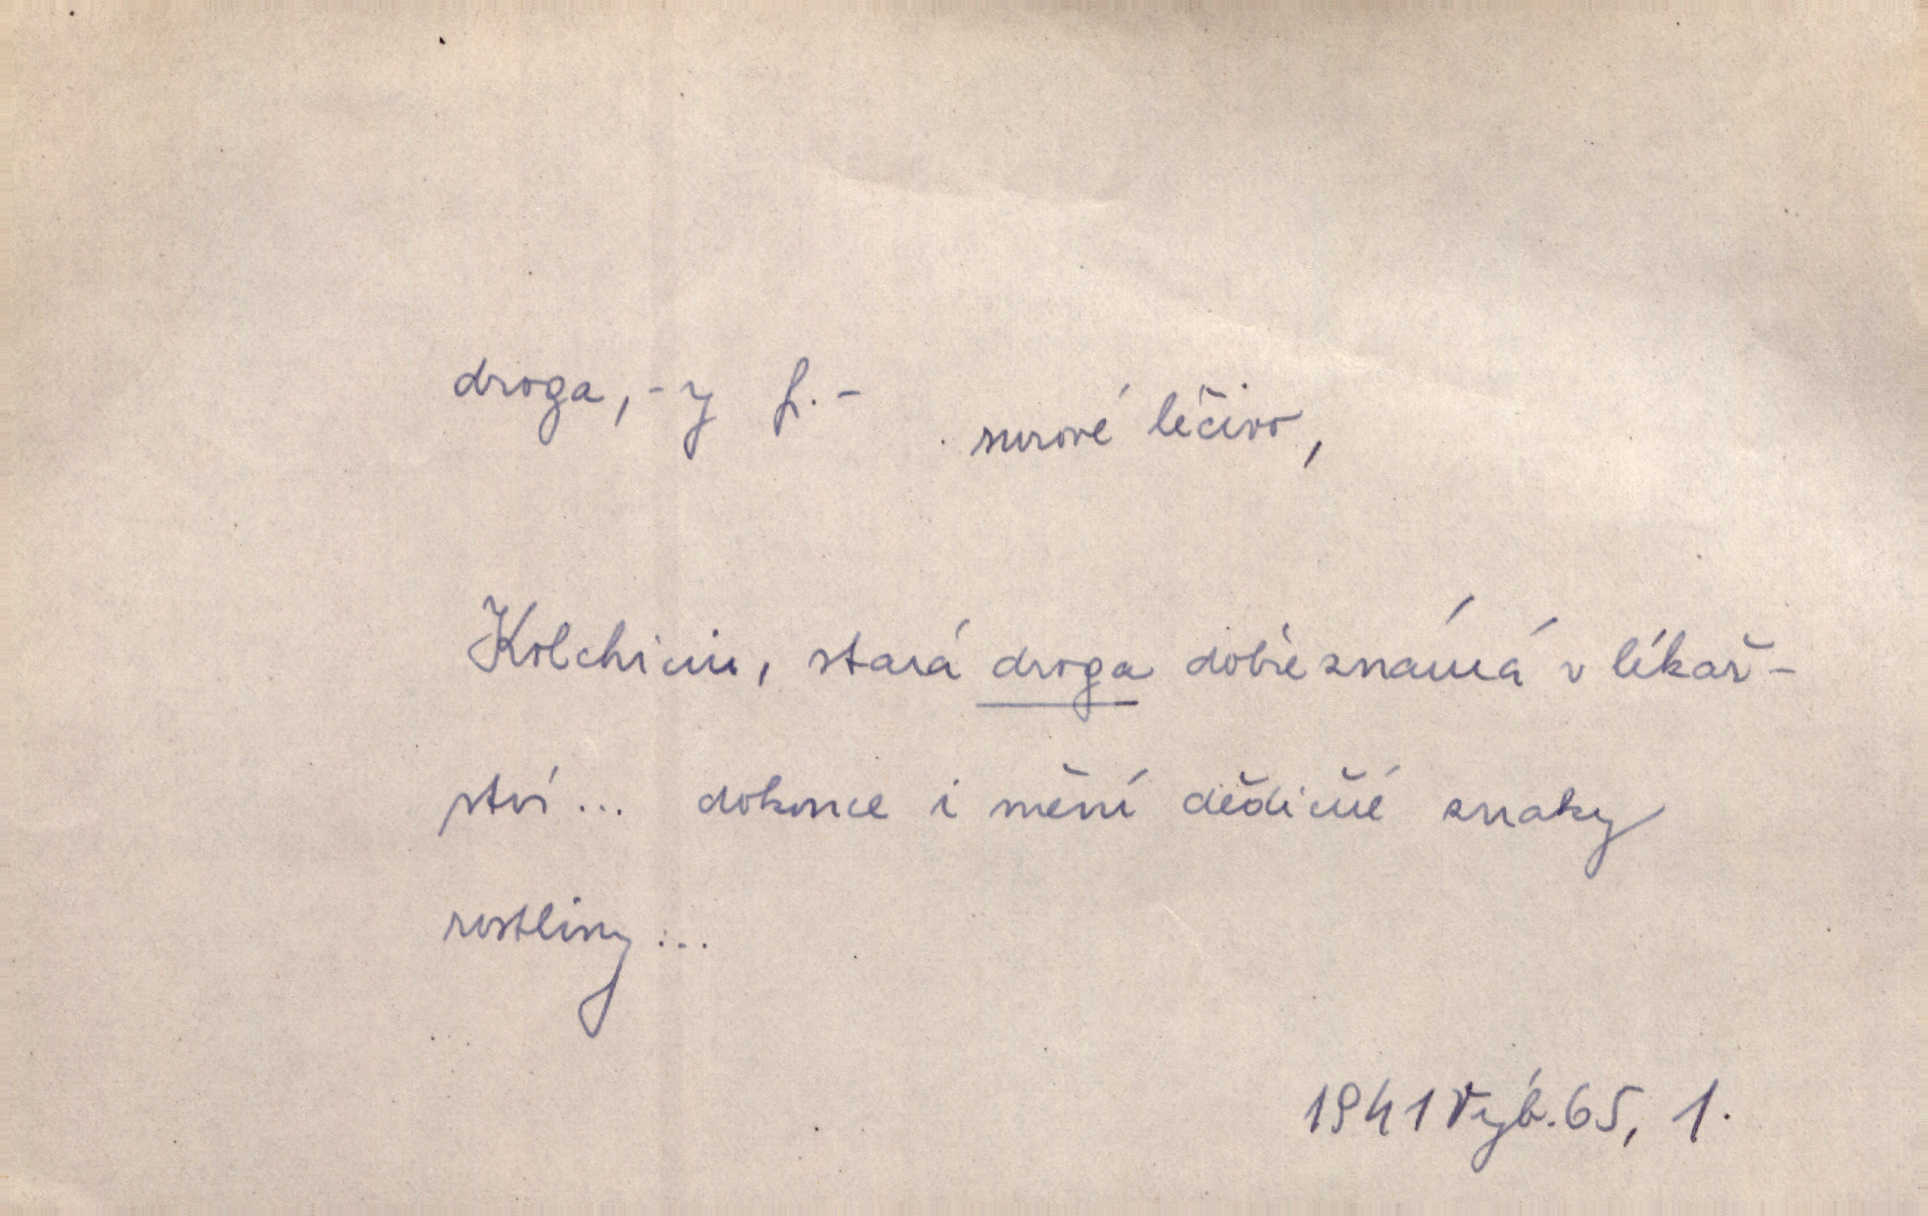 droga, -y f. -
surové léčivo,
Kolchicin, stará droga dobře známá v lékař-
ství... dokonce i mění dědičné znaky
rostliny...
1941 Výb. 65, 1.